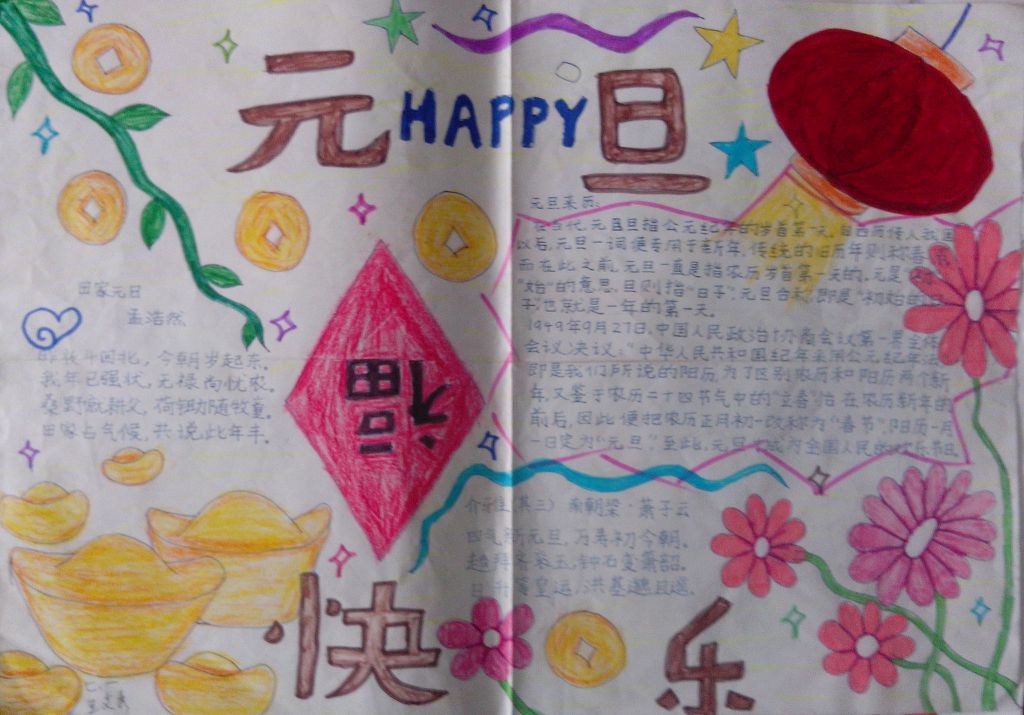 元HAPPY旦
元旦来历:
在当代,元旦指公元纪年的岁首第一天。自西历传入我国
以后,元旦一词便专用于新年,传统的旧历年则称春节
而在此之前,元旦一直是指农历岁首第一天的。元是
"始"的意思,旦则指"日子",元旦合称,即是"初始的日
子",也就是一年的第一天。
1949年9月27日,中国人民政治协商会议第一届全体
会议决议:"中华人民共和国纪年采用公元纪年法
即是我们所说的阳历,为了区别农历和阳历两个新
年,又鉴于农历二十四节气中的"立春"恰在农历新年的
前后,因此便把农历正月初一改称为"春节",阳历一月
一日定为"元旦",至此,元旦才成为全国人民的欢乐节日
田家元日
孟浩然
昨夜斗回北,今朝岁起东。
我年已强壮,无禄尚忧农。
桑野就耕父,荷锄随牧童。
田家占气候,共说此年丰。
福
介雅(其三) 南朝梁·萧子云
四气新元旦,万寿初今朝。
趋拜齐衮玉,钟石变箫韶。
日升等皇运,洪基邈且遥。
快乐